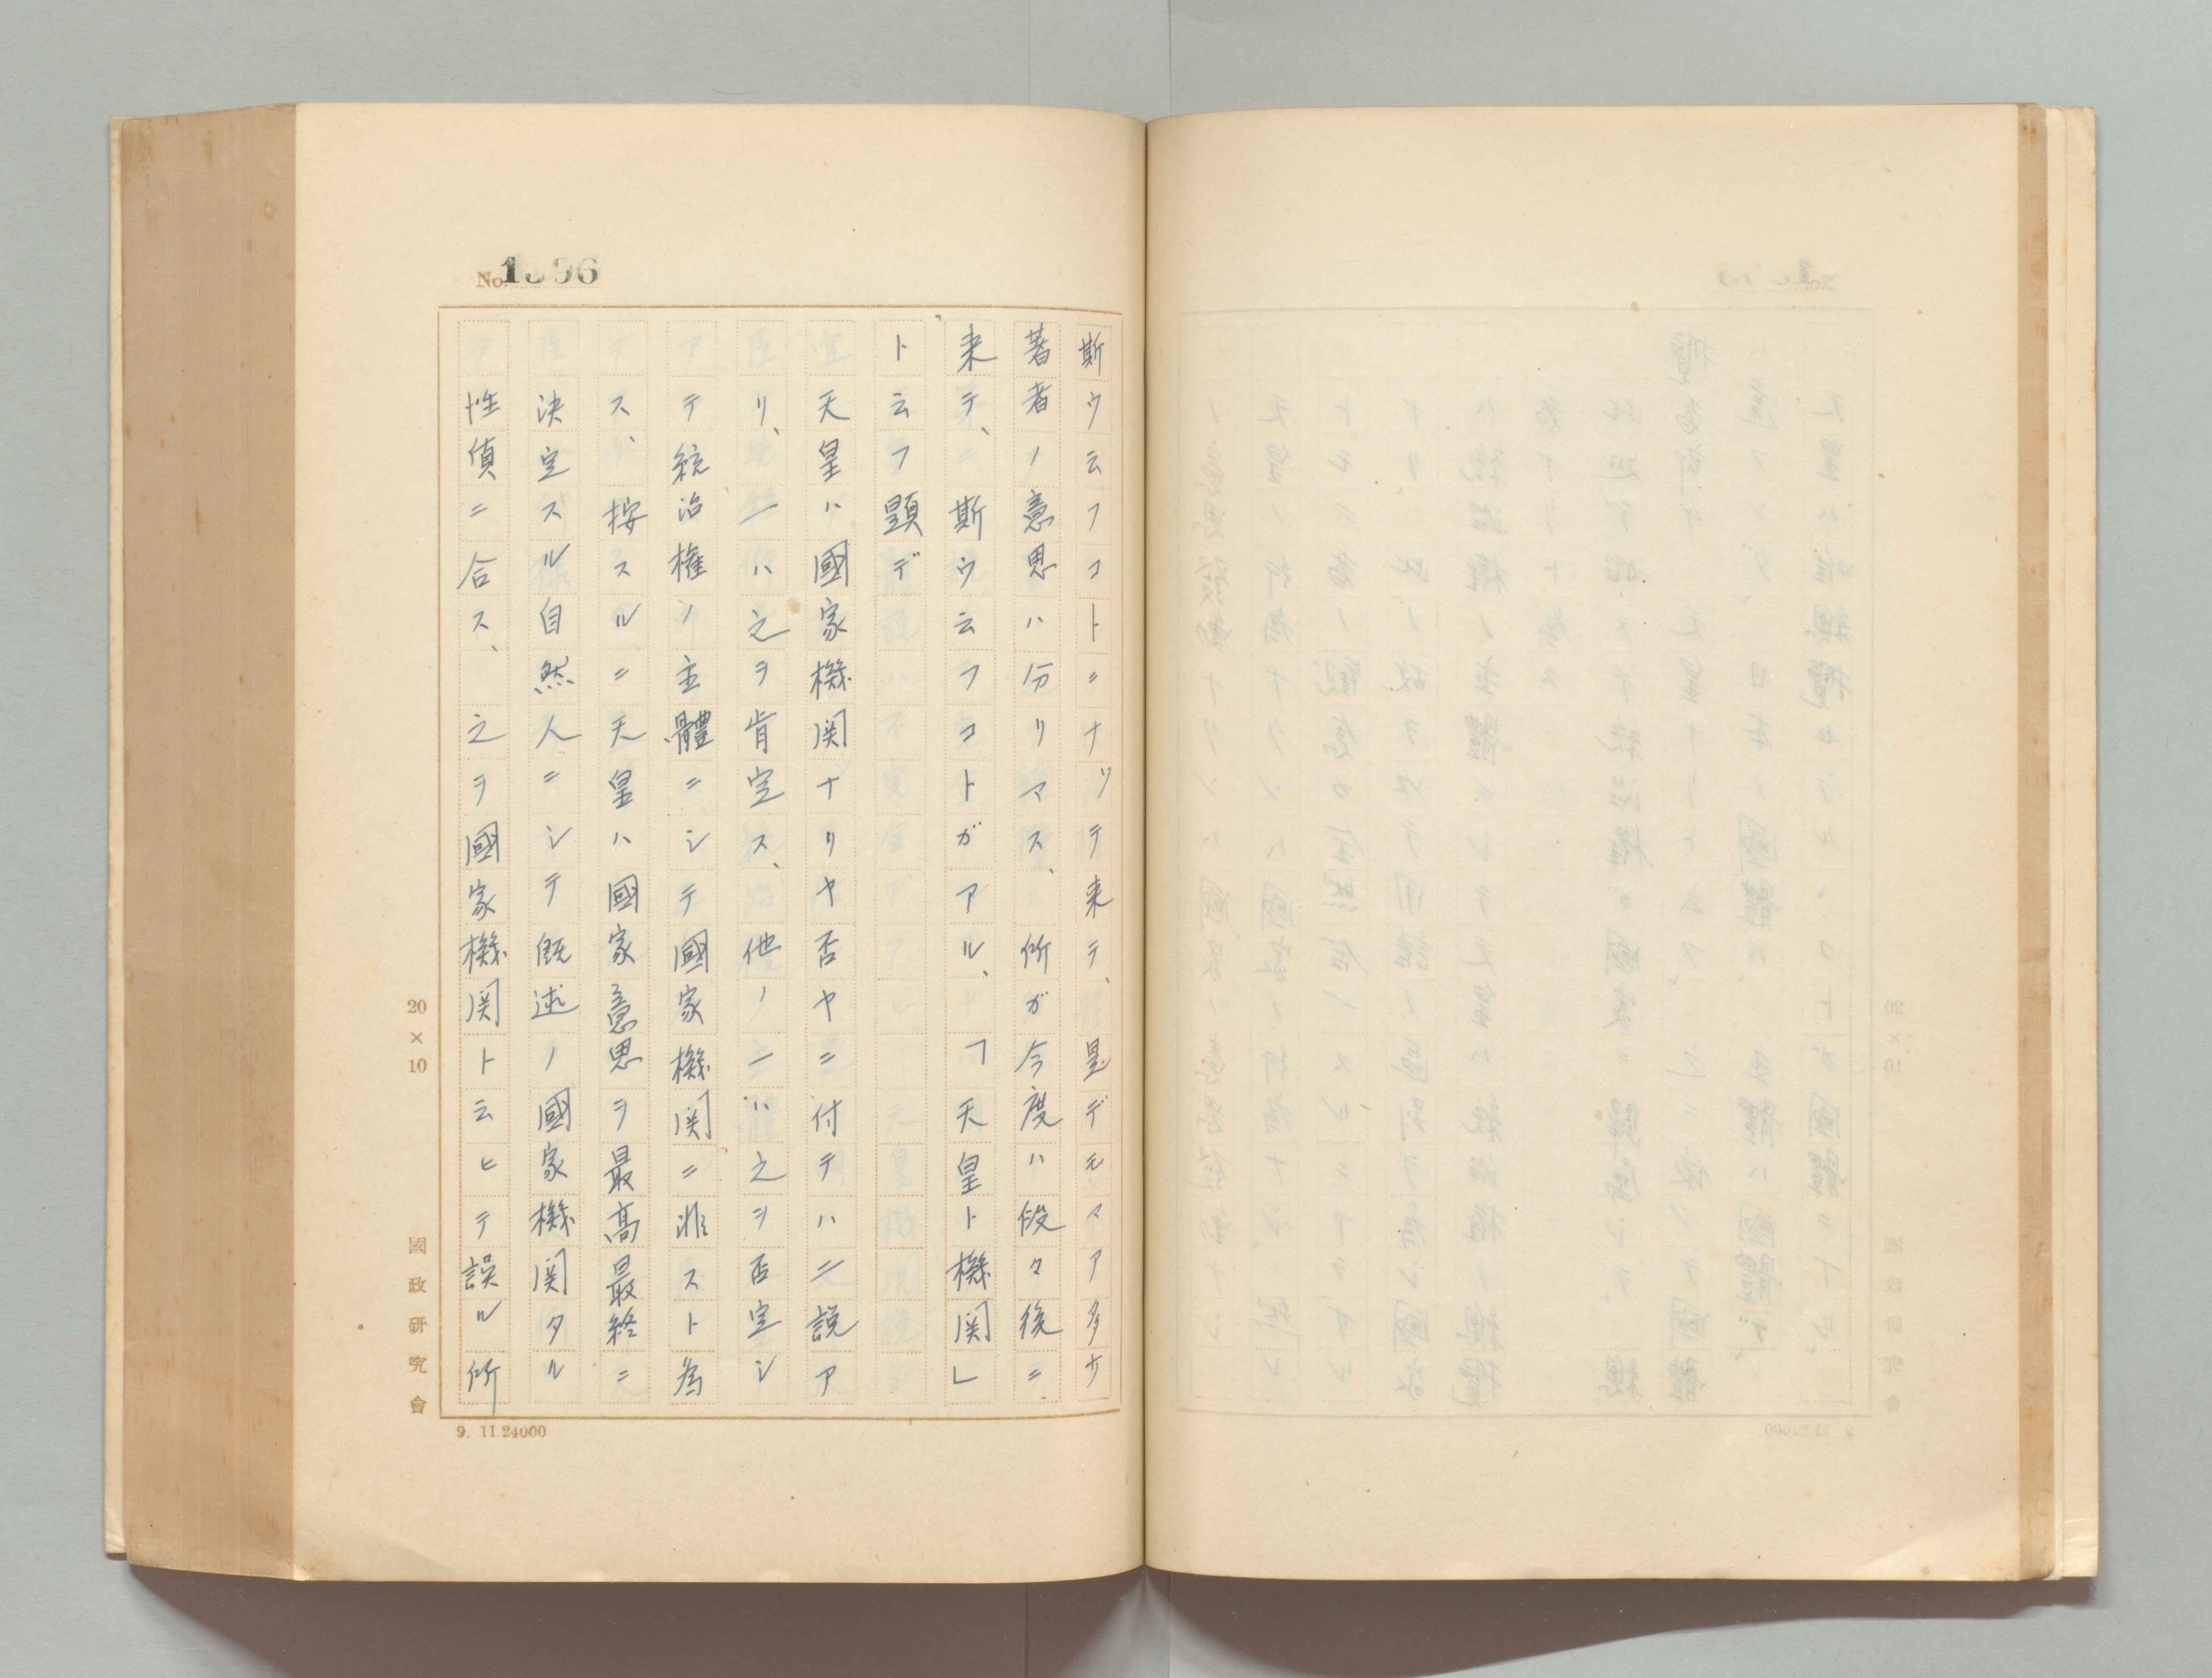 No. 1396
斯ウ云フコトニナツテ来テ、是デモマア多少
著者ノ意思ハ分リマス、所ガ今度ハ段々後ニ
来テ、斯ウ云フコトガアル、「天皇ト機関」
ト云フ題デ
天皇ハ國家機関ナリヤ否ヤニ付テハ二説ア
リ、一ハ之ヲ肯定ス、他ノ一ハ之ヲ否定シ
テ統治権ノ主體ニシテ國家機関ニ非スト為
ス、按スルニ天皇ハ國家意思ヲ最高最終ニ
決定スル自然人ニシテ既述ノ國家機関タル
性質ニ合ス、之ヲ國家機関ト云ヒテ誤ル所
20×10
國政研究會
9. 11.24000